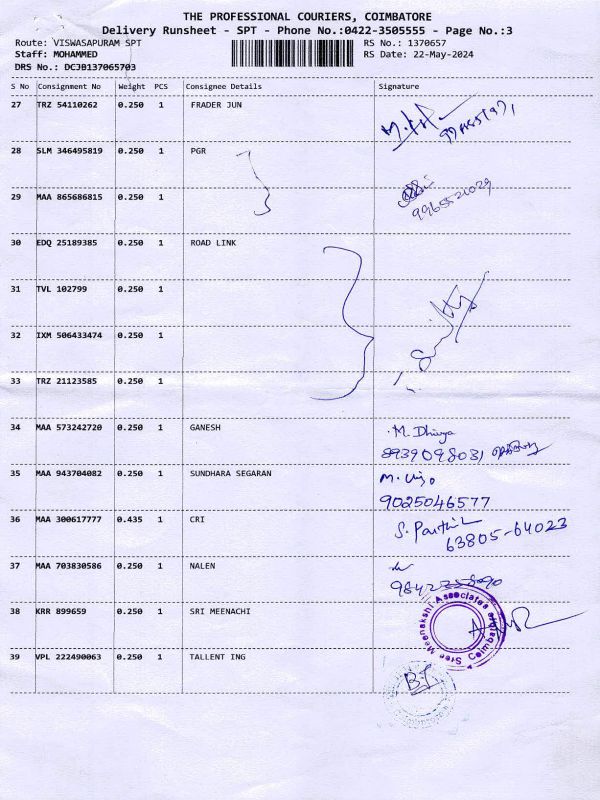 THE PROFESSIONAL COURIERS, COIMBATORE
Delivery Runsheet - SPT - Phone No.:0422-3505555 - Page No.:3
Route: VISWASAPURAM SPT RS No.: 1370657
Staff: MOHAMMED RS Date: 22-May-2024
DRS No.: DCJB137065703
S No Consignment No Weight PCS Consignee Details Signature
27 TRZ 54110262 0.250 1 FRADER JUN
28 SLM 346495819 0.250 1 PGR
29 MAA 865686815 0.250 1
9965521029
30 EDQ 25189385 0.250 1 ROAD LINK
31 TVL 102799 0.250 1
32 IXM 506433474 0.250 1
33 TRZ 21123585 0.250 1
34 MAA 573242720 0.250 1 GANESH M. Dhivya
8939098031
35 MAA 943704082 0.250 1 SUNDHARA SEGARAN
9025046577
36 MAA 300617777 0.435 1 CRI
63805-64023
37 MAA 703830586 0.250 1 NALEN
38 KRR 899659 0.250 1 SRI MEENACHI
Sree Meenakshi Associates Coimbatore
39 VPL 222490063 0.250 1 TALLENT ING